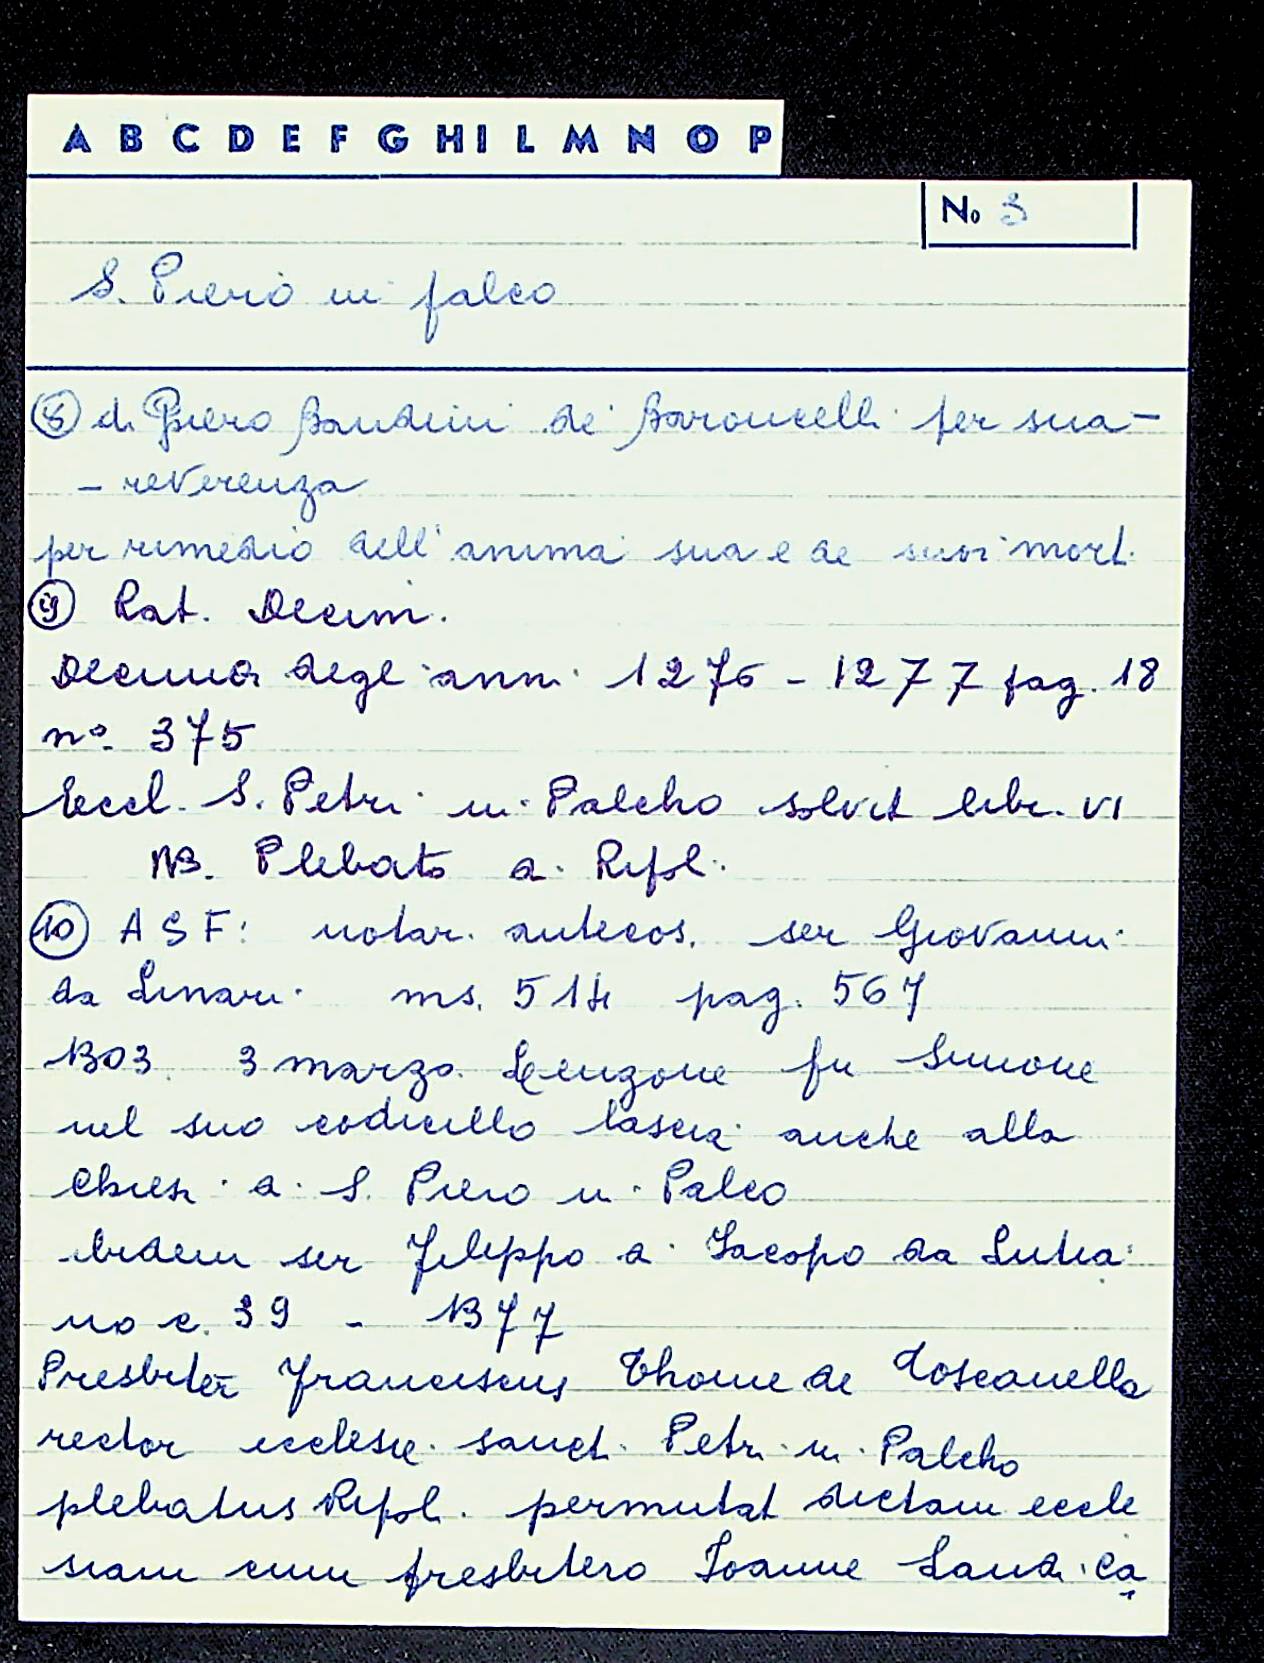 A B C D E F G H I L M N O P
No 3
S. Piero in palco
di Piero Bandini de' Baroncelli per sua –
– reverenza
per rimedio dell'anima sua e de suoi morti
⑨ Rat. Decim.
Decima degli anni 1276 – 1277 pag. 18
n°. 375
Eccl. S. Petri in Palcho solvit libr. VI
NB. Plebato di Ripoli
⑩ ASF: notar. antecos. ser Giovanni
da Linari ms. 514 pag. 567
1303. 3 marzo. Lenzone fu Simone
nel suo codicillo lascia anche alla
chiesa di S. Piero in Palco
ibidem ser Filippo di Iacopo da Lutia
no c. 39 – 1377
Presbiter Franciscus Thome de Toscanella
rector ecclesie sancti Petri in Palcho
plebatus Ripoli permutat dictam eccle
siam cum presbitero Ioanne Landi ca